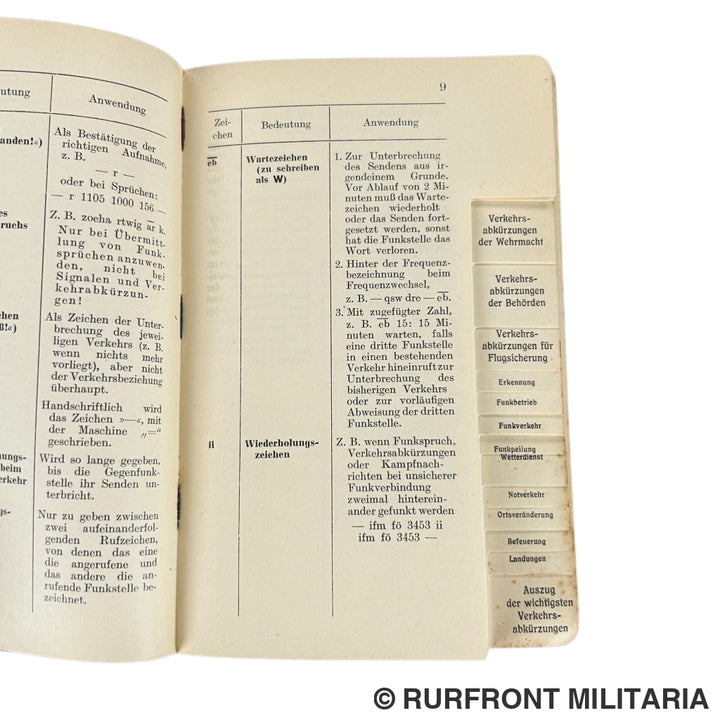 utung
Anwendung
anden!“)
Als Bestätigung der
richtigen Aufnahme,
z. B.
— r —
oder bei Sprüchen:
— r 1105 1000 156 —
es
ruchs
Z. B. zocha rtwig a͞r k.
Nur bei Übermitt-
lung von Funk-
sprüchen anzuwen-
den, nicht bei
Signalen und Ver-
kehrabkürzun-
gen!
hen
ß!“)
Als Zeichen der Unter-
brechung des jewei-
ligen Verkehrs (z. B.
wenn nichts mehr
vorliegt), aber nicht
der Verkehrsbeziehung
überhaupt.
Handschriftlich wird
das Zeichen »—«, mit
der Maschine „=“
geschrieben.
nungs-
beim
erkehr
Wird so lange gegeben,
bis die Gegenfunk-
stelle ihr Senden un-
terbricht.
gs-
Nur zu geben zwischen
zwei aufeinanderfol-
genden Rufzeichen,
von denen das eine
die angerufene und
das andere die an-
rufende Funkstelle be-
zeichnet.
9
Zei-
chen
Bedeutung
Anwendung
e͞b
Wartezeichen
(zu schreiben
als W)
1. Zur Unterbrechung
des Sendens aus ir-
gendeinem Grunde.
Vor Ablauf von 2 Mi-
nuten muß das Warte-
zeichen wiederholt
oder das Senden fort-
gesetzt werden, sonst
hat die Funkstelle das
Wort verloren.
2. Hinter der Frequenz-
bezeichnung beim
Frequenzwechsel,
z. B. — qsw dre — e͞b.
3. Mit zugefügter Zahl,
z. B. e͞b 15: 15 Mi-
nuten warten, falls
eine dritte Funkstelle
in einen bestehenden
Verkehr hineinruft zur
Unterbrechung des
bisherigen Verkehrs
oder zur vorläufigen
Abweisung der dritten
Funkstelle.
ii
Wiederholungs-
zeichen
Z. B. wenn Funkspruch,
Verkehrsabkürzungen
oder Kampfnach-
richten bei unsicherer
Funkverbindung
zweimal hinterein-
ander gefunkt werden
— ifm fö 3453 ii
ifm fö 3453 —
Verkehrs-
abkürzungen
der Wehrmacht
Verkehrs-
abkürzungen
der Behörden
Verkehrs-
abkürzungen für
Flugsicherung
Erkennung
Funkbetrieb
Funkverkehr
Funkpeilung
Wetterdienst
Notverkehr
Ortsveränderung
Befeuerung
Landungen
Auszug
der wichtigsten
Verkehrs-
abkürzungen
© RURFRONT MILITARIA